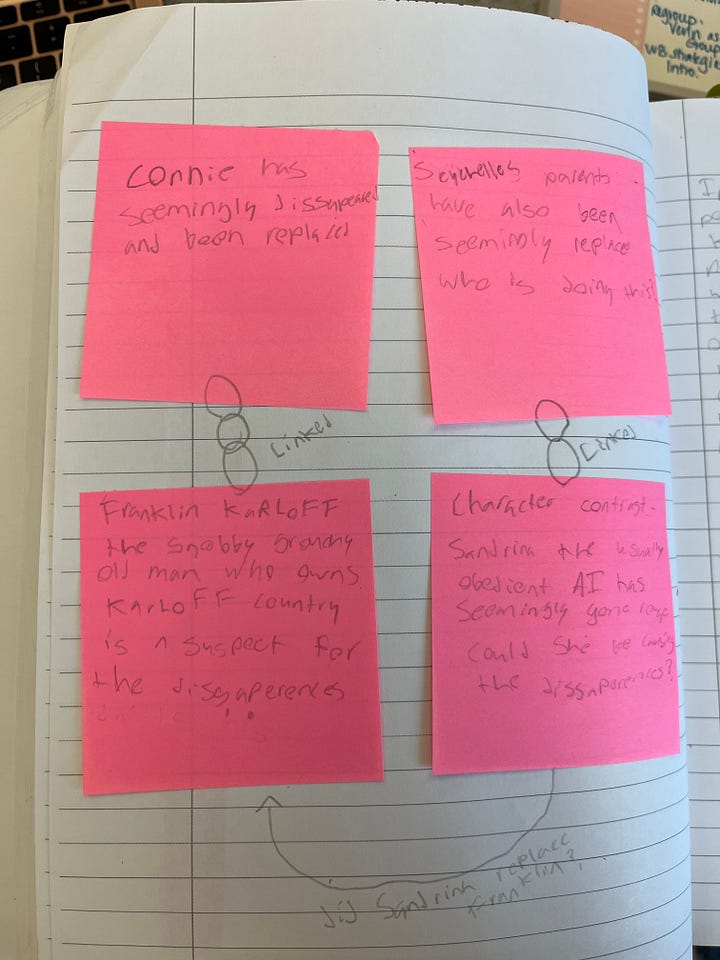 Regroup.
Verin as
Group
WB strategies
Intro.
Connie has
seemingly dissapeared
and been replaced
Seychelles parents
have also been
seemingly replace
who is doing this?
Linked
Linked
Franklin KARLOFF
the snobby grouchy
old man who owns
KARLOFF country
is a suspect for
the dissaperences
Character contrast-
Sandrina the usually
obedient AI has
seemingly gone rouge
could she be causing
the dissaparences?
did Sandrina replace
franklin?